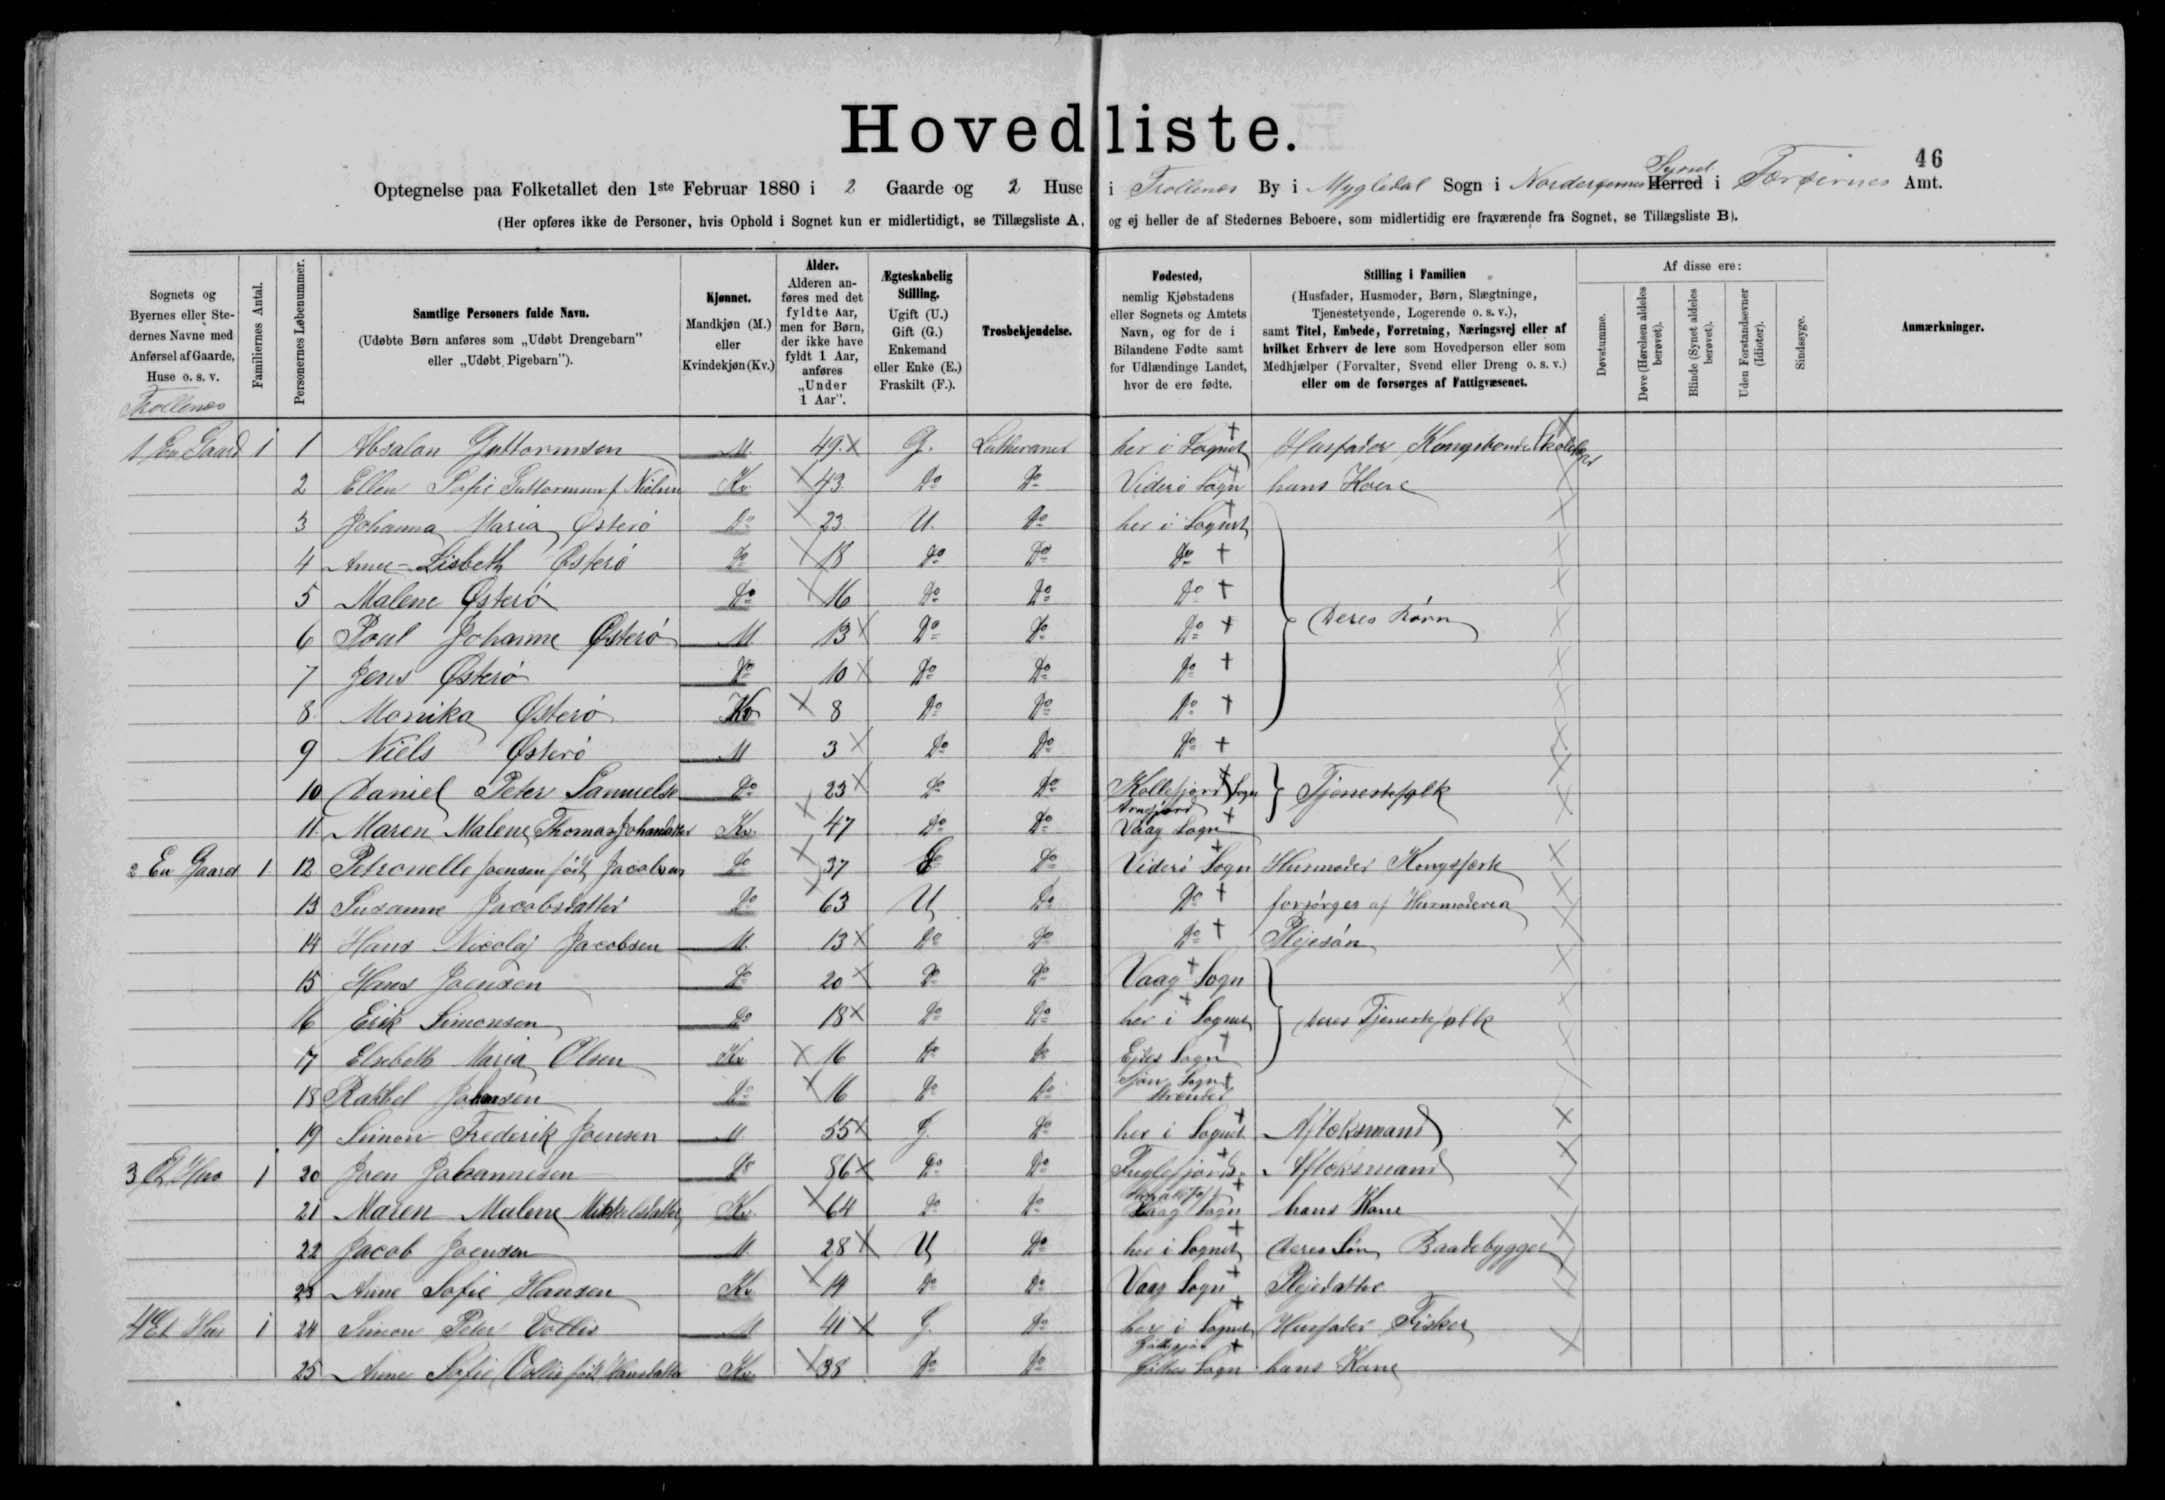 46
Hovedliste.
Optegnelse paa Folketallet den 1ste Februar 1880 i 2 Gaarde og 2 Huse i Trollenes By i Mygledal Sogn i Norderøernes Herred Syssel i Færøernes Amt.
(Her opføres ikke de Personer, hvis Ophold i Sognet kun er midlertidigt, se Tillægsliste A, og ej heller de af Stedernes Beboere, som midlertidig ere fraværende fra Sognet, se Tillægsliste B).
Sognets og Byernes eller Stedernes Navne med Anførsel af Gaarde, Huse o. s. v.
Familiernes Antal.
Personernes Løbenummer.
Samtlige Personers fulde Navn.
(Udøbte Børn anføres som „Udøbt Drengebarn" eller „Udøbt Pigebarn").
Kjønnet.
Mandkjøn (M.) eller Kvindekjøn (Kv.)
Alder.
Alderen anføres med det fyldte Aar, men for Børn, der ikke have fyldt 1 Aar, anføres „Under 1 Aar".
Ægteskabelig Stilling.
Ugift (U.) Gift (G.) Enkemand eller Enke (E.) Fraskilt (F.).
Trosbekjendelse.
Fødested,
nemlig Kjøbstadens eller Sognets og Amtets Navn, og for de i Bilandene Fødte samt for Udlændinge Landet, hvor de ere fødte.
Stilling i Familien
(Husfader, Husmoder, Børn, Slægtninge, Tjenestetyende, Logerende o. s. v.), samt Titel, Embede, Forretning, Næringsvej eller af hvilket Erhverv de leve som Hovedperson eller som Medhjælper (Forvalter, Svend eller Dreng o. s. v.) eller om de forsørges af Fattigvæsenet.
Af disse ere:
Døvstumme.
Døve (Hørelsen aldeles berøvet).
Blinde (Synet aldeles berøvet).
Uden Forstandsevner (Idioter).
Sindssyge.
Anmærkninger.
Trollenes
1 En Gaard 1 1 Absalon Guttormsen M. 49 G. Lutheraner her i Sognet Husfader Kongsbonde
2 Ellen Sofie Guttormsen f. Nielsen Kv. 43 Do Do Viderö Sogn hans Kone
3 Johanna Maria Østerö Do 23 U Do her i Sognet
4 Anne-Lisbeth Østerö Do 18 Do Do Do
5 Malene Østerö Do 16 Do Do Do
6 Poul Johanne Østerö M 13 Do Do Do Deres Børn
7 Jens Østerö Do 10 Do Do Do
8 Monika Østerö Kv 8 Do Do Do
9 Niels Østerö M 3 Do Do Do
10 Daniel Peter Samuelse Do 23 Do Do Kollefjord Sogn Tjenestefolk
11 Maren Malene Thomas Kv. 47 Do Do Vaag Sogn
2 En Gaard 1 12 Petronelle Joensen født Jacobsen Do 37 E Do Viderö Sogn Husmoder Kongsfæste
13 Susanne Jacobsdatter Do 63 U Do Do forsörges af Husmoderen
14 Hans Nicolaj Jacobsen M. 13 Do Do Do Plejesön
15 Hans Joensen Do 20 Do Do Vaag Sogn
16 Erik Simonsen Do 18 Do Do her i Sognet deres Tjenestefolk
17 Elsebeth Maria Olsen Kv. 16 Do Do Ejdes Sogn
18 Rakkel Johansen Do 16 Do Do Sogn
19 Simon Frederik Joensen M. 55 G. Do her i Sognet Aftoksmand
3 Et Hus 1 20 Joen Johannesen Do 86 Do Do Fuglefjords Aftoksmand
21 Maren Malene Mikkelsdatter Kv. 64 Do Do Vaag Sogn hans Kone
22 Jacob Joensen M. 28 U Do her i Sognet deres Sön Baadebygger
23 Anne Sofie Hansen Kv. 14 Do Do Vaag Sogn Plejedatter
4 Et Hus 1 24 Simon Peter Dollis M 41 G. Do her i Sognet Husfader Fisker
25 Anne Sofie Dollis født Hansdatter Kv. 38 Do Do Sogn hans Kone